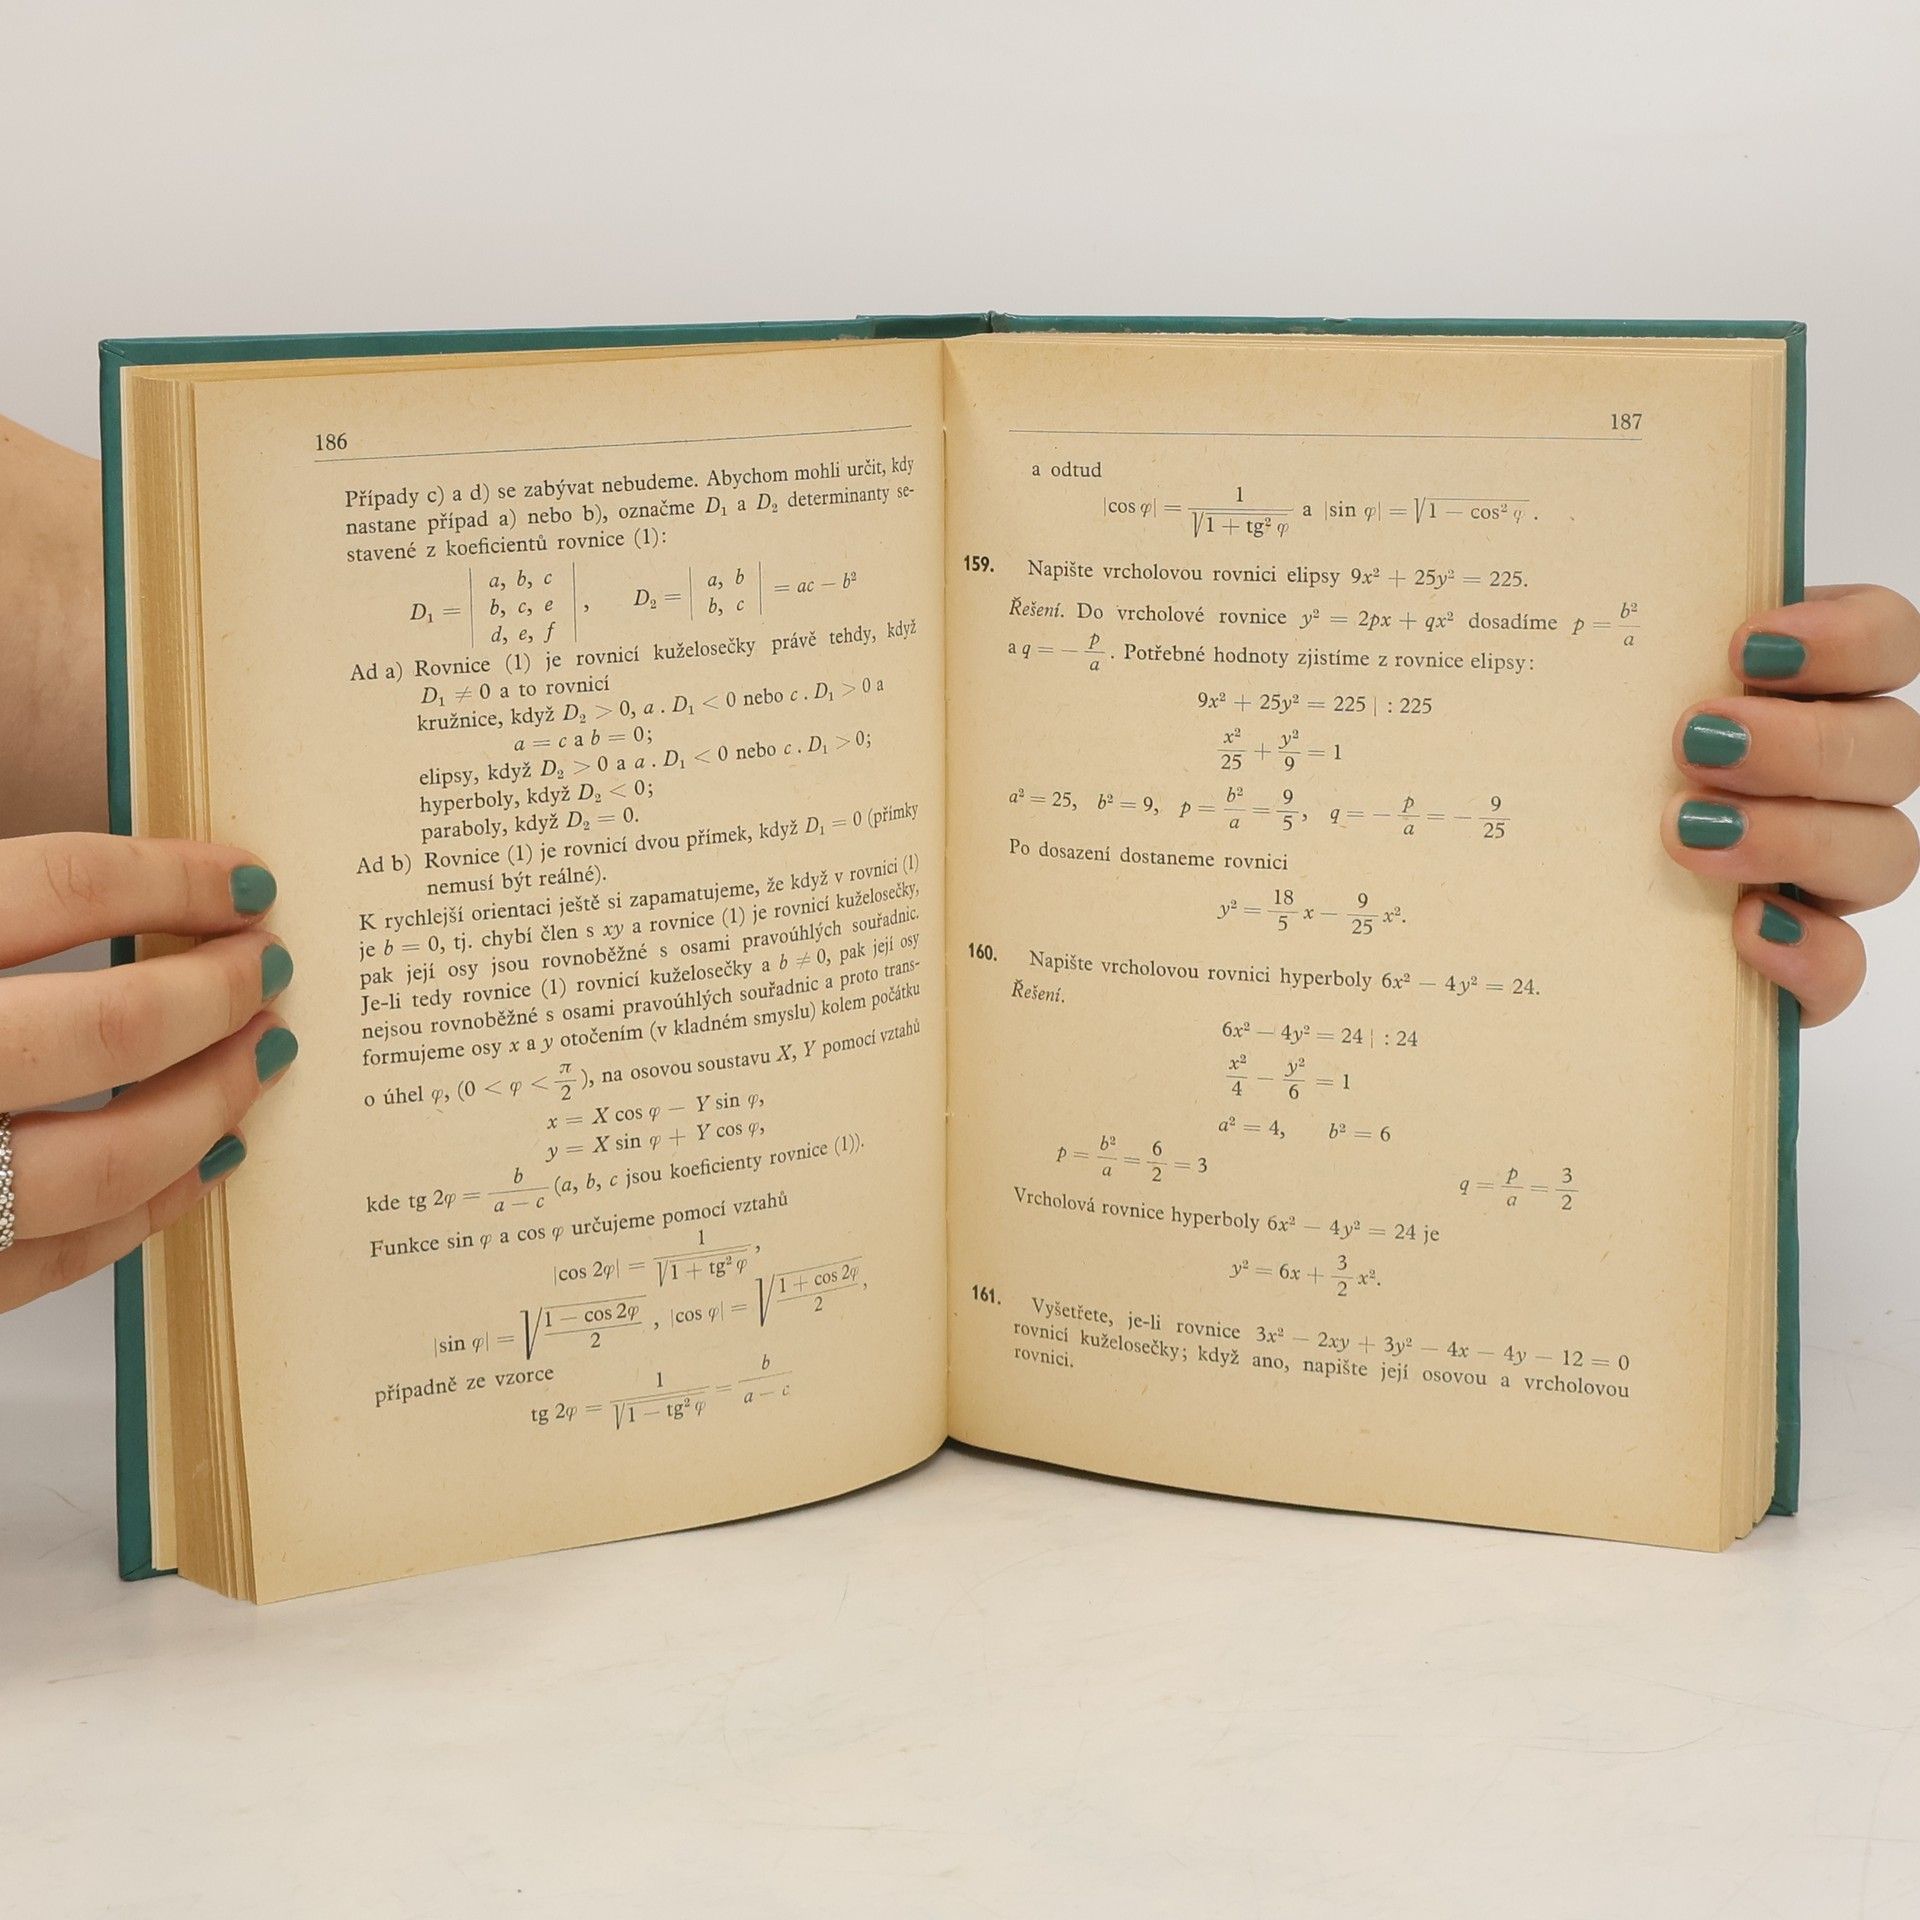 186
Případy c) a d) se zabývat nebudeme. Abychom mohli určit, kdy
nastane případ a) nebo b), označme D₁ a D₂ determinanty se-
stavené z koeficientů rovnice (1):
D₁ = | a, b, c | , D₂ = | a, b | = ac − b²
| b, c, e | | b, c |
| d, e, f |
Ad a) Rovnice (1) je rovnicí kuželosečky právě tehdy, když
D₁ ≠ 0 a to rovnicí
kružnice, když D₂ > 0, a . D₁ < 0 nebo c . D₁ > 0 a
a = c a b = 0;
elipsy, když D₂ > 0 a a . D₁ < 0 nebo c . D₁ > 0;
hyperboly, když D₂ < 0;
paraboly, když D₂ = 0.
Ad b) Rovnice (1) je rovnicí dvou přímek, když D₁ = 0 (přímky
nemusí být reálné).
K rychlejší orientaci ještě si zapamatujeme, že když v rovnici (1)
je b = 0, tj. chybí člen s xy a rovnice (1) je rovnicí kuželosečky,
pak její osy jsou rovnoběžné s osami pravoúhlých souřadnic.
Je-li tedy rovnice (1) rovnicí kuželosečky a b ≠ 0, pak její osy
nejsou rovnoběžné s osami pravoúhlých souřadnic a proto trans-
formujeme osy x a y otočením (v kladném smyslu) kolem počátku
o úhel φ, (0 < φ < π/2), na osovou soustavu X, Y pomocí vztahů
x = X cos φ − Y sin φ,
y = X sin φ + Y cos φ,
kde tg 2φ = b/(a − c) (a, b, c jsou koeficienty rovnice (1)).
Funkce sin φ a cos φ určujeme pomocí vztahů
|cos 2φ| = 1/√(1 + tg² φ),
|sin φ| = √((1 − cos 2φ)/2) , |cos φ| = √((1 + cos 2φ)/2),
případně ze vzorce
tg 2φ = 1/√(1 − tg² φ) = b/(a − c)
187
a odtud
|cos φ| = 1/√(1 + tg² φ) a |sin φ| = √(1 − cos² φ) .
159. Napište vrcholovou rovnici elipsy 9x² + 25y² = 225.
Řešení. Do vrcholové rovnice y² = 2px + qx² dosadíme p = b²/a
a q = − p/a . Potřebné hodnoty zjistíme z rovnice elipsy:
9x² + 25y² = 225 | : 225
x²/25 + y²/9 = 1
a² = 25, b² = 9, p = b²/a = 9/5, q = − p/a = − 9/25
Po dosazení dostaneme rovnici
y² = 18/5 x − 9/25 x².
160. Napište vrcholovou rovnici hyperboly 6x² − 4y² = 24.
Řešení.
6x² − 4y² = 24 | : 24
x²/4 − y²/6 = 1
a² = 4, b² = 6
p = b²/a = 6/2 = 3 q = p/a = 3/2
Vrcholová rovnice hyperboly 6x² − 4y² = 24 je
y² = 6x + 3/2 x².
161. Vyšetřete, je-li rovnice 3x² − 2xy + 3y² − 4x − 4y − 12 = 0
rovnicí kuželosečky; když ano, napište její osovou a vrcholovou
rovnici.